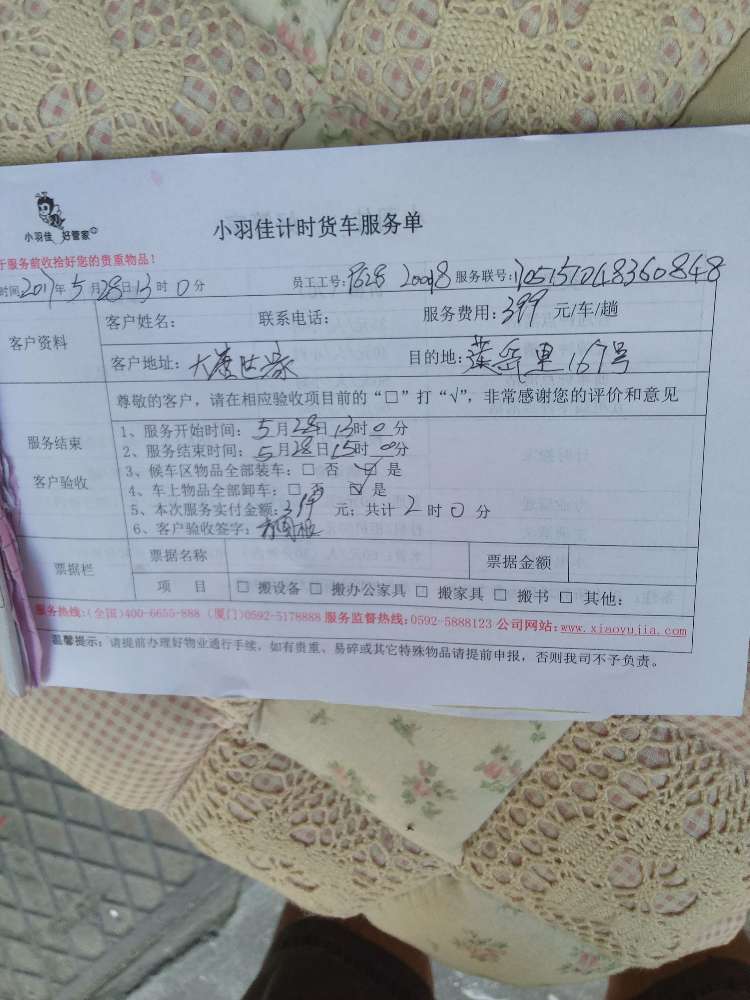 小羽佳 好管家
小羽佳计时货车服务单
于服务前收拾好您的贵重物品!
时间:2017年5月28日13时0分 员工工号: 20008 服务联号:
客户资料
客户姓名: 联系电话: 服务费用:399元/车/趟
客户地址:大唐世家 目的地:莲岳里167号
尊敬的客户,请在相应验收项目前的“□”打“√”,非常感谢您的评价和意见
服务结束
客户验收
1、服务开始时间:5月28日13时0分
2、服务结束时间:5月28日15时0分
3、候车区物品全部装车:□ 否 ☑ 是
4、车上物品全部卸车:□ 否 ☑ 是
5、本次服务实付金额:399元;共计2时0分
6、客户验收签字:
票据栏
票据名称 票据金额
项 目 □ 搬设备 □ 搬办公家具 □ 搬家具 □ 搬书 □ 其他:
服务热线:(全国)400-6655-888 (厦门)0592-5178888 服务监督热线:0592-5888123 公司网站:www.xiaoyujia.com
温馨提示:请提前办理好物业通行手续,如有贵重、易碎或其它特殊物品请提前申报,否则我司不予负责。